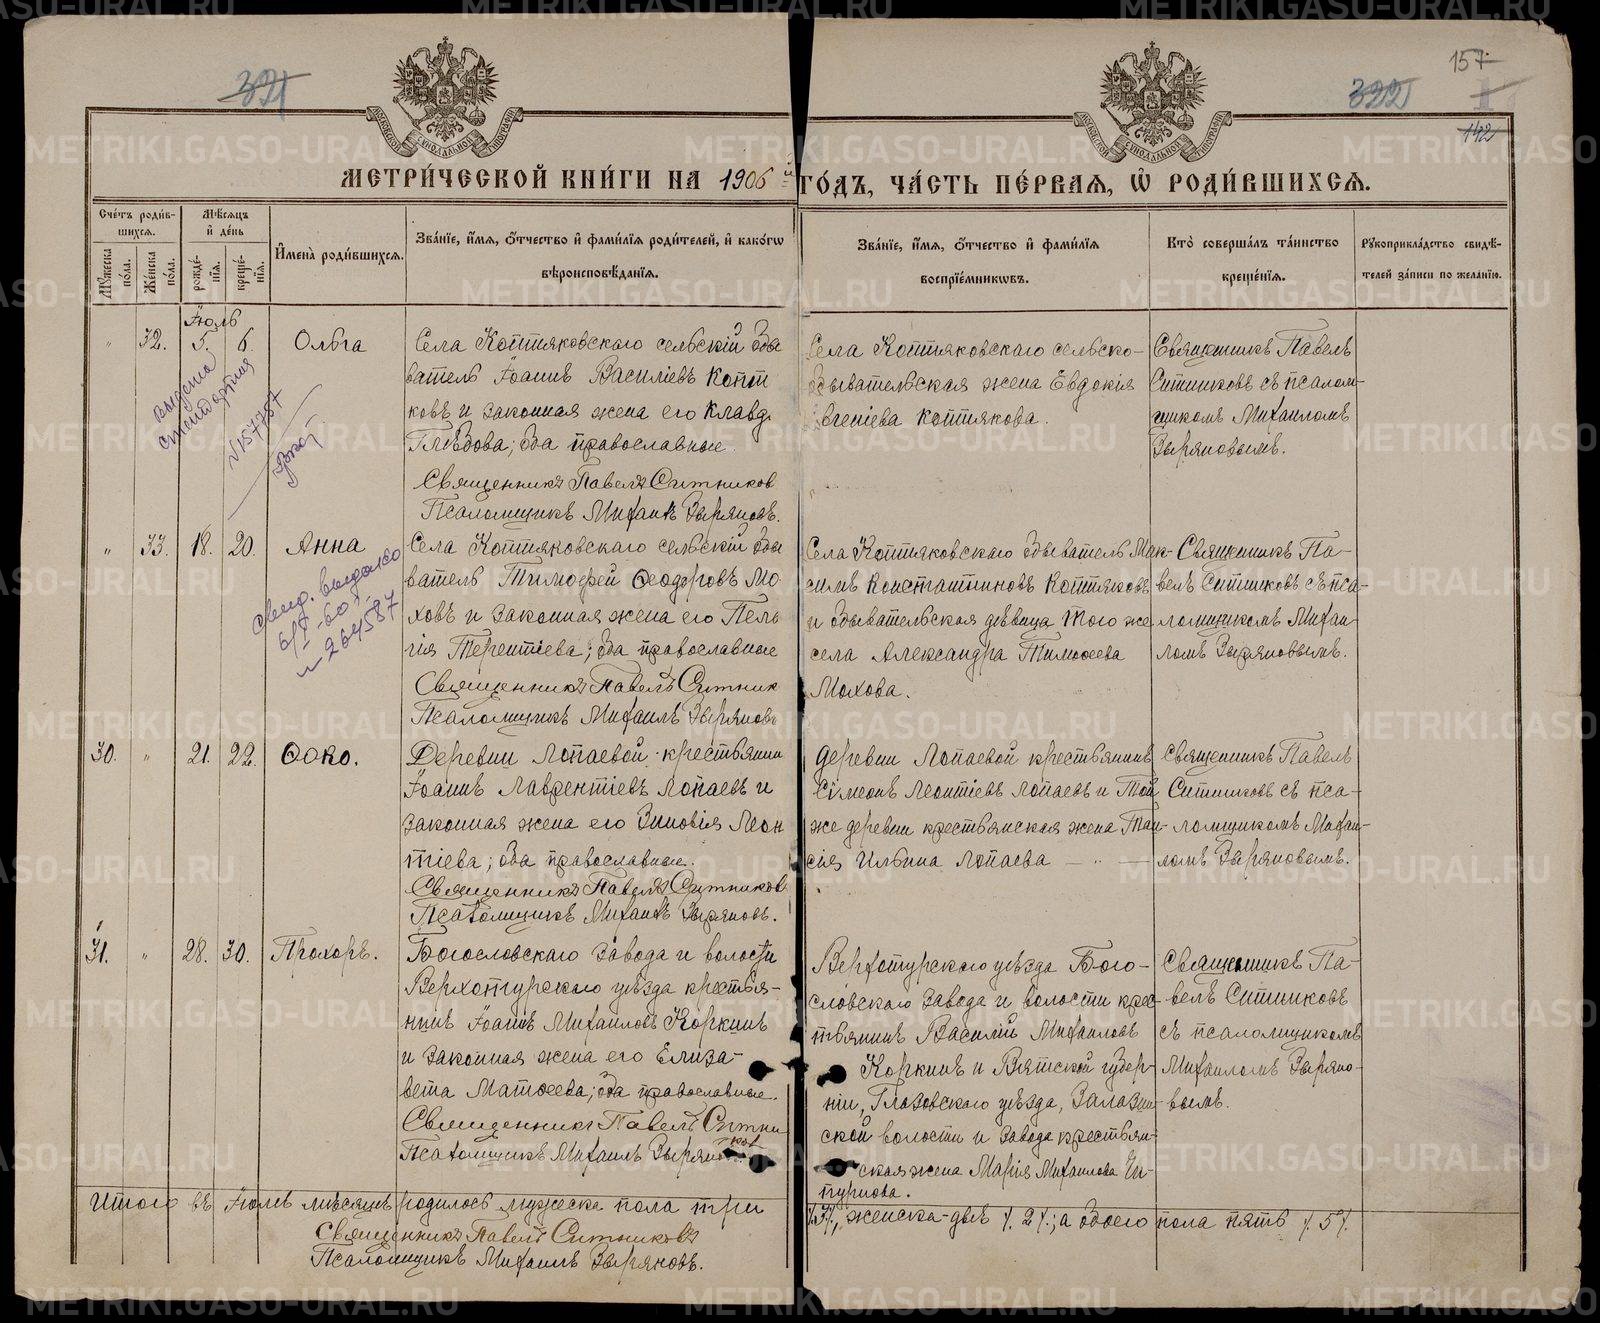 321
322
157
142
МОСКОВСКОЙ СѴНОДАЛЬНОЙ ТИПОГРАФІИ
МОСКОВСКОЙ СѴНОДАЛЬНОЙ ТИПОГРАФІИ
МЕТРИ́ЧЕСКОЙ КНИ́ГИ НА 1906 й ГО́ДЪ, ЧА́СТЬ ПЕ́РВАЯ, Ѡ РОДИ́ВШИХСЯ.
Сче́тъ роди́в-
шихся.
Му́жеска по́ла.
Же́нска по́ла.
Мѣ́сяцъ
и де́нь
рожде́-
нїя.
креще́-
нїя.
И́мена̀ роди́вшихся.
Зва́нїе, и́мя, о́тчество и фами́лїя роди́телей, и како́гѡ
вѣроисповѣ́данїя.
Зва́нїе, и́мя, о́тчество и фами́лїя
воспрїе́мникѡвъ.
Кто̀ соверша́лъ та́инство
креще́нїя.
Рꙋкоприкла́дство свидѣ́-
телей за́писи по жела́нїю.
Іюль
" 32. 5. 6. Ольга
Села Коптяковскаго сельскій обы
ватель Іоаннъ Василіевъ Копт
ковъ и законная жена его Клавд
Глѣбова; оба православные.
Священникъ Павелъ Ситников
Псаломщикъ Михаилъ Зыряновъ.
Села Коптяковскаго сельско-
обывательская жена Евдокія
Евгеніева Коптякова.
Священникъ Павелъ
Ситниковъ съ псалом-
щикомъ Михаиломъ
Зыряновымъ.
выдана
№157757
" 33. 18. 20. Анна
Села Коптяковскаго сельскій обы
ватель Тимоѳей Ѳеодоровъ Мо
ховъ и законная жена его Пела
гія Терентіева; оба православные
Священникъ Павелъ Ситник
Псаломщикъ Михаилъ Зыряновъ
Села Коптяковскаго обыватель Мак-
симъ Константиновъ Коптяковъ
и обывательская дѣвица того же
села Александра Тимоѳеева
Мохова.
Священникъ Па-
велъ Ситниковъ съ пса-
ломщикомъ Михаи-
ломъ Зыряновымъ.
свид. выдано
6/X-60 г.
№ 264587
30. " 21. 22. Ѳока.
Деревни Лопаевой крестьянин
Іоаннъ Лаврентіевъ Лопаевъ и
законная жена его Зиновія Леон
тіева; оба православные.
Священникъ Павелъ Ситниковъ
Псаломщикъ Михаилъ Зыряновъ.
Деревни Лопаевой крестьянинъ
Симеонъ Леонтіевъ Лопаевъ и той
же деревни крестьянская жена Таи-
сія Ильина Лопаева — " —
Священникъ Павелъ
Ситниковъ съ пса-
ломщикомъ Михаи-
ломъ Зыряновымъ.
31. " 28. 30. Прохоръ.
Богословскаго завода и волости
Верхотурскаго уѣзда крестья-
нинъ Іоаннъ Михаиловъ Коркинъ
и законная жена его Елиза-
вета Матѳеева; оба православные.
Священникъ Павелъ Ситни
ков
Псаломщикъ Михаилъ Зырянов
Верхотурскаго уѣзда Бого-
словскаго завода и волости крес-
тьянинъ Василій Михаиловъ
Коркинъ и Вятской губер-
ніи, Глазовскаго уѣзда, Залазни-
ской волости и завода крестьян-
ская жена Марія Михаилова Чи-
пурнова.
Священникъ Па-
велъ Ситниковъ
съ псаломщикомъ
Михаиломъ Зыряно-
вымъ.
Итого въ Іюлѣ мѣсяцѣ родилось мужеска пола три
/.3/., женска-двѣ /.2/.; а обоего пола пять /.5/.
Священникъ Павелъ Ситниковъ
Псаломщикъ Михаилъ Зыряновъ.
METRIKI.GASO-URAL.RU